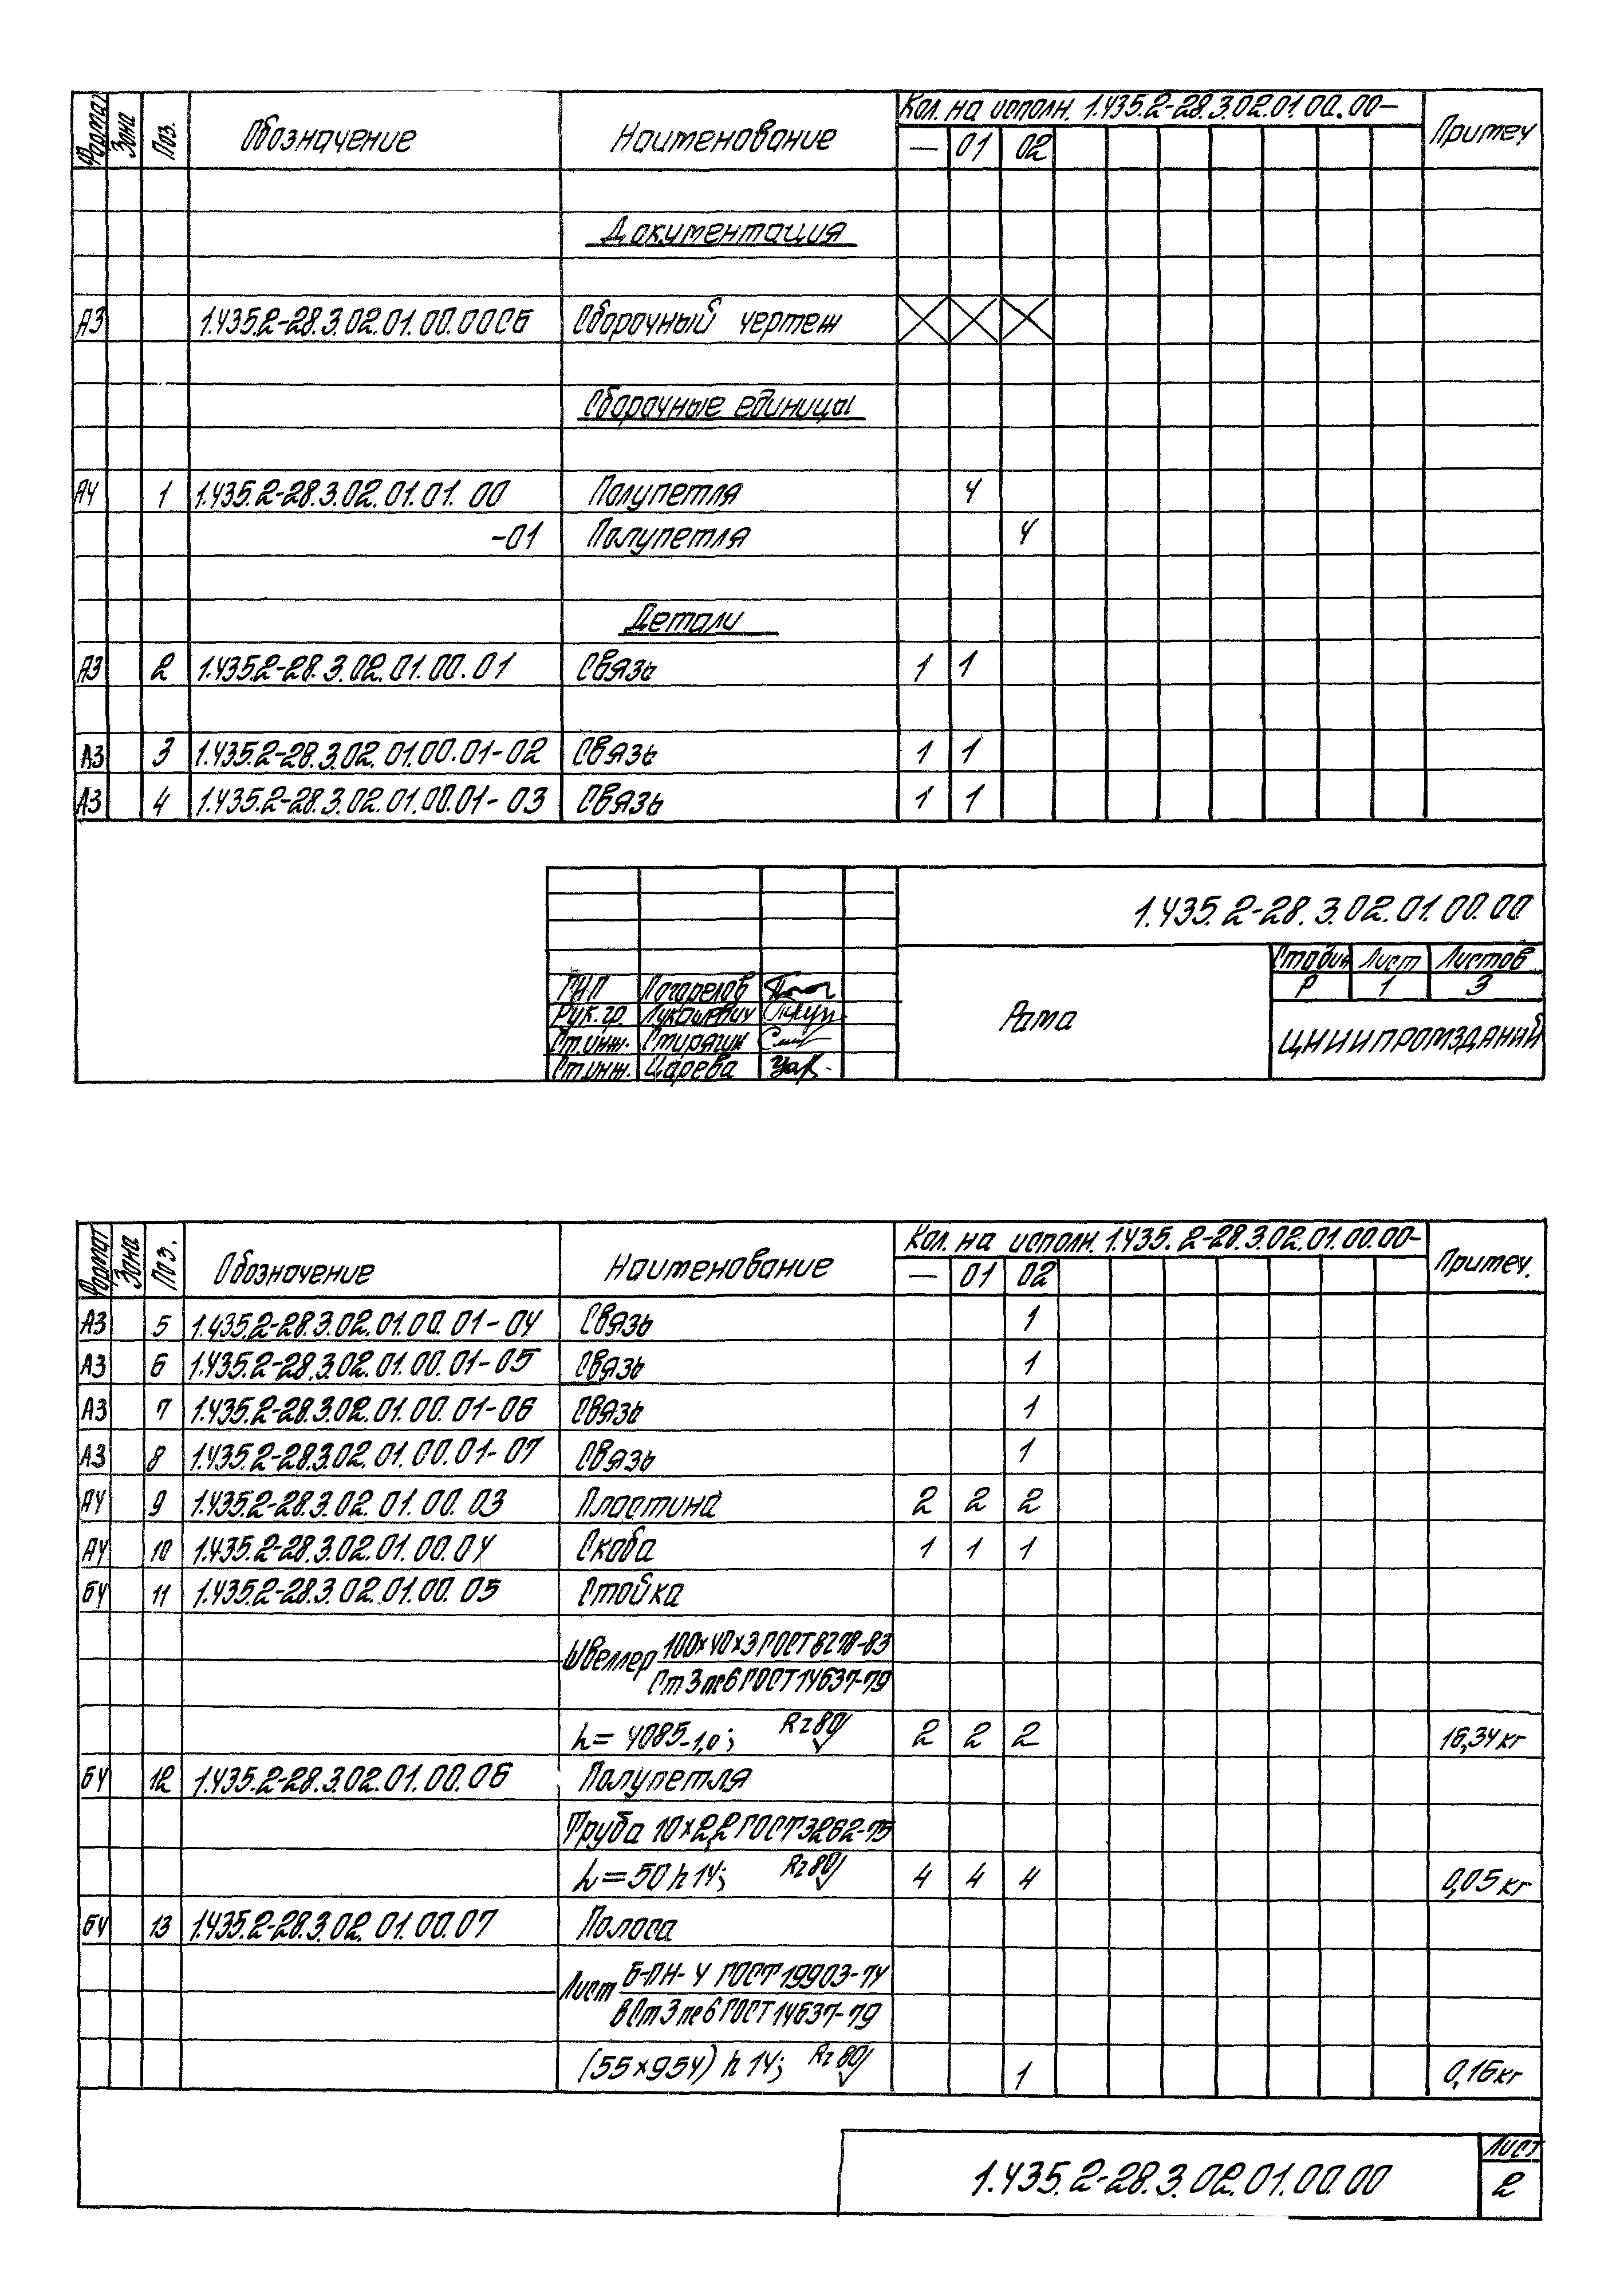 Формат Зона Поз. Обозначение Наименование Кол. на исполн. 1.435.2-28.3.02.01.00.00— Примеч
— 01 02
Документация
А3 1.435.2-28.3.02.01.00.00СБ Сборочный чертеж
Сборочные единицы
А4 1 1.435.2-28.3.02.01.01.00 Полупетля 4
-01 Полупетля 4
Детали
А3 2 1.435.2-28.3.02.01.00.01 Связь 1 1
А3 3 1.435.2-28.3.02.01.00.01-02 Связь 1 1
А3 4 1.435.2-28.3.02.01.00.01-03 Связь 1 1
1.435.2-28.3.02.01.00.00
Стадия Лист Листов
Р 1 3
ГИП Погорелов
Рук.гр. Лукашевич
Ст.инж. Стирягин
Ст.инж. Царева
Рама
ЦНИИПРОМЗДАНИЙ
Формат Зона Поз. Обозначение Наименование Кол. на исполн. 1.435.2-28.3.02.01.00.00- Примеч.
— 01 02
А3 5 1.435.2-28.3.02.01.00.01-04 Связь 1
А3 6 1.435.2-28.3.02.01.00.01-05 Связь 1
А3 7 1.435.2-28.3.02.01.00.01-06 Связь 1
А3 8 1.435.2-28.3.02.01.00.01-07 Связь 1
А4 9 1.435.2-28.3.02.01.00.03 Пластина 2 2 2
А4 10 1.435.2-28.3.02.01.00.04 Скоба 1 1 1
БЧ 11 1.435.2-28.3.02.01.00.05 Стойка
Швеллер 100×40×3 ГОСТ 8278-83
Ст3пс6 ГОСТ 14637-79
L= 4085-1,0; Rz80 2 2 2 16,34кг
БЧ 12 1.435.2-28.3.02.01.00.06 Полупетля
Труба 10×2,2 ГОСТ 3262-75
L=50 h14; Rz80 4 4 4 0,05кг
БЧ 13 1.435.2-28.3.02.01.00.07 Полоса
Лист Б-ПН-4 ГОСТ 19903-74
ВСт3пс6 ГОСТ 14637-79
(55×954) h14; Rz80 1 0,16кг
1.435.2-28.3.02.01.00.00
Лист
2